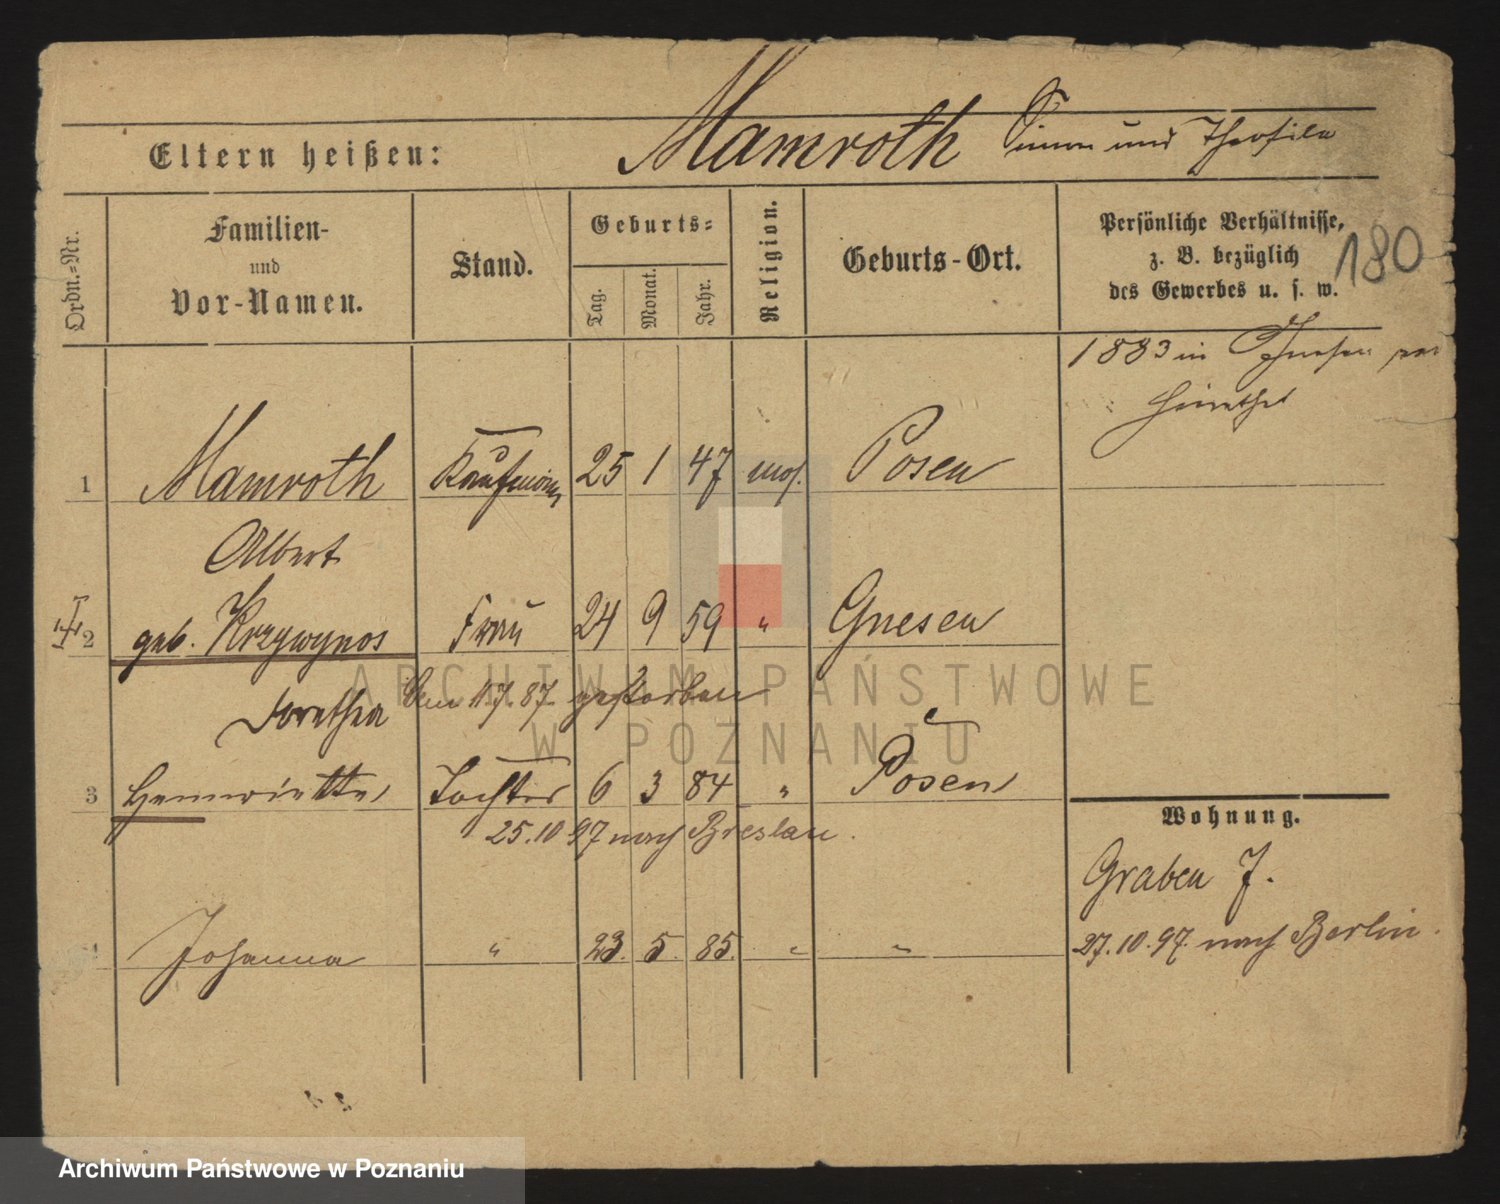 Eltern heißen: Mamroth Simon und Theofila
Ordn.=Nr.
Familien-
und
Vor-Namen.
Stand.
Geburts=
Tag.
Monat.
Jahr.
Religion.
Geburts-Ort.
Persönliche Verhältnisse,
z. B. bezüglich
des Gewerbes u. s. w.
180
1883 in Gnesen ver
heirathet
1 Mamroth Kaufmann 25 1 47 mos. Posen
Albert
2 geb. Krzywynos Frau 24 9 59 " Gnesen
Dorothea den 11/7. 87. gestorben
3 Hennriette Tochter 6 3 84 " Posen
25.10 97 nach Breslau.
4 Johanna " 23. 5. 85. " "
Wohnung.
Graben 7.
27.10.97. nach Berlin.
ARCHIWUM PAŃSTWOWE
W POZNANIU
Archiwum Państwowe w Poznaniu